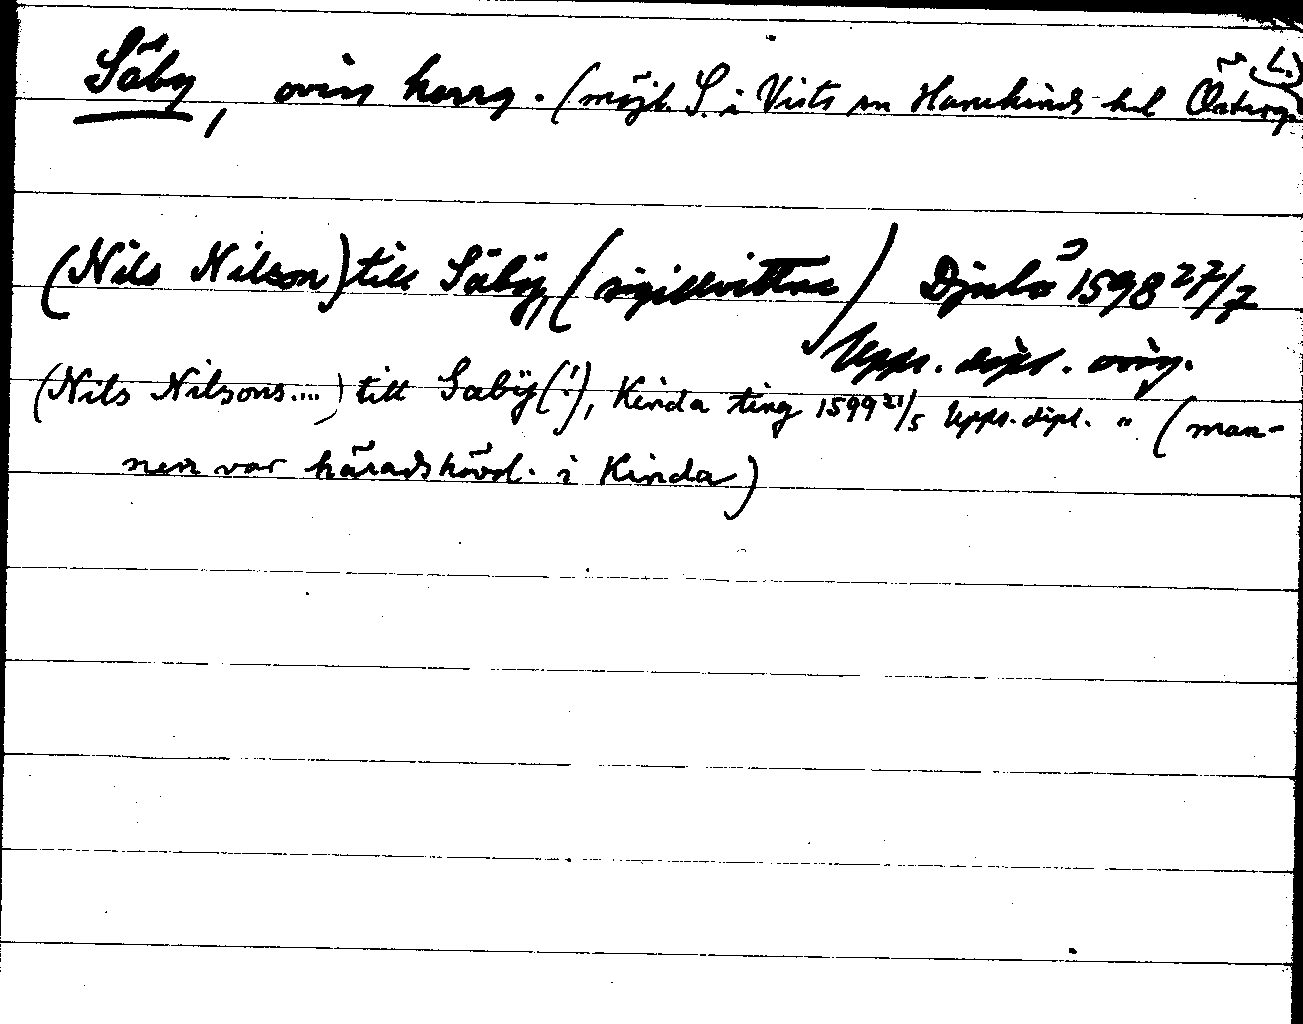 Säby, oviss herrg. (möjl. S. i Vists sn Hanekinds hd Österg. L.)
(Nils Nilson) till Säbÿ, (sigillvittne) Djulö 1598 27/7
Upps. dipl. orig.
(Nils Nilsons....) till Sabÿ(!), Kinda ting 1599 21/5 Upps. dipl. " (man-
nen var häradshövd. i Kinda)